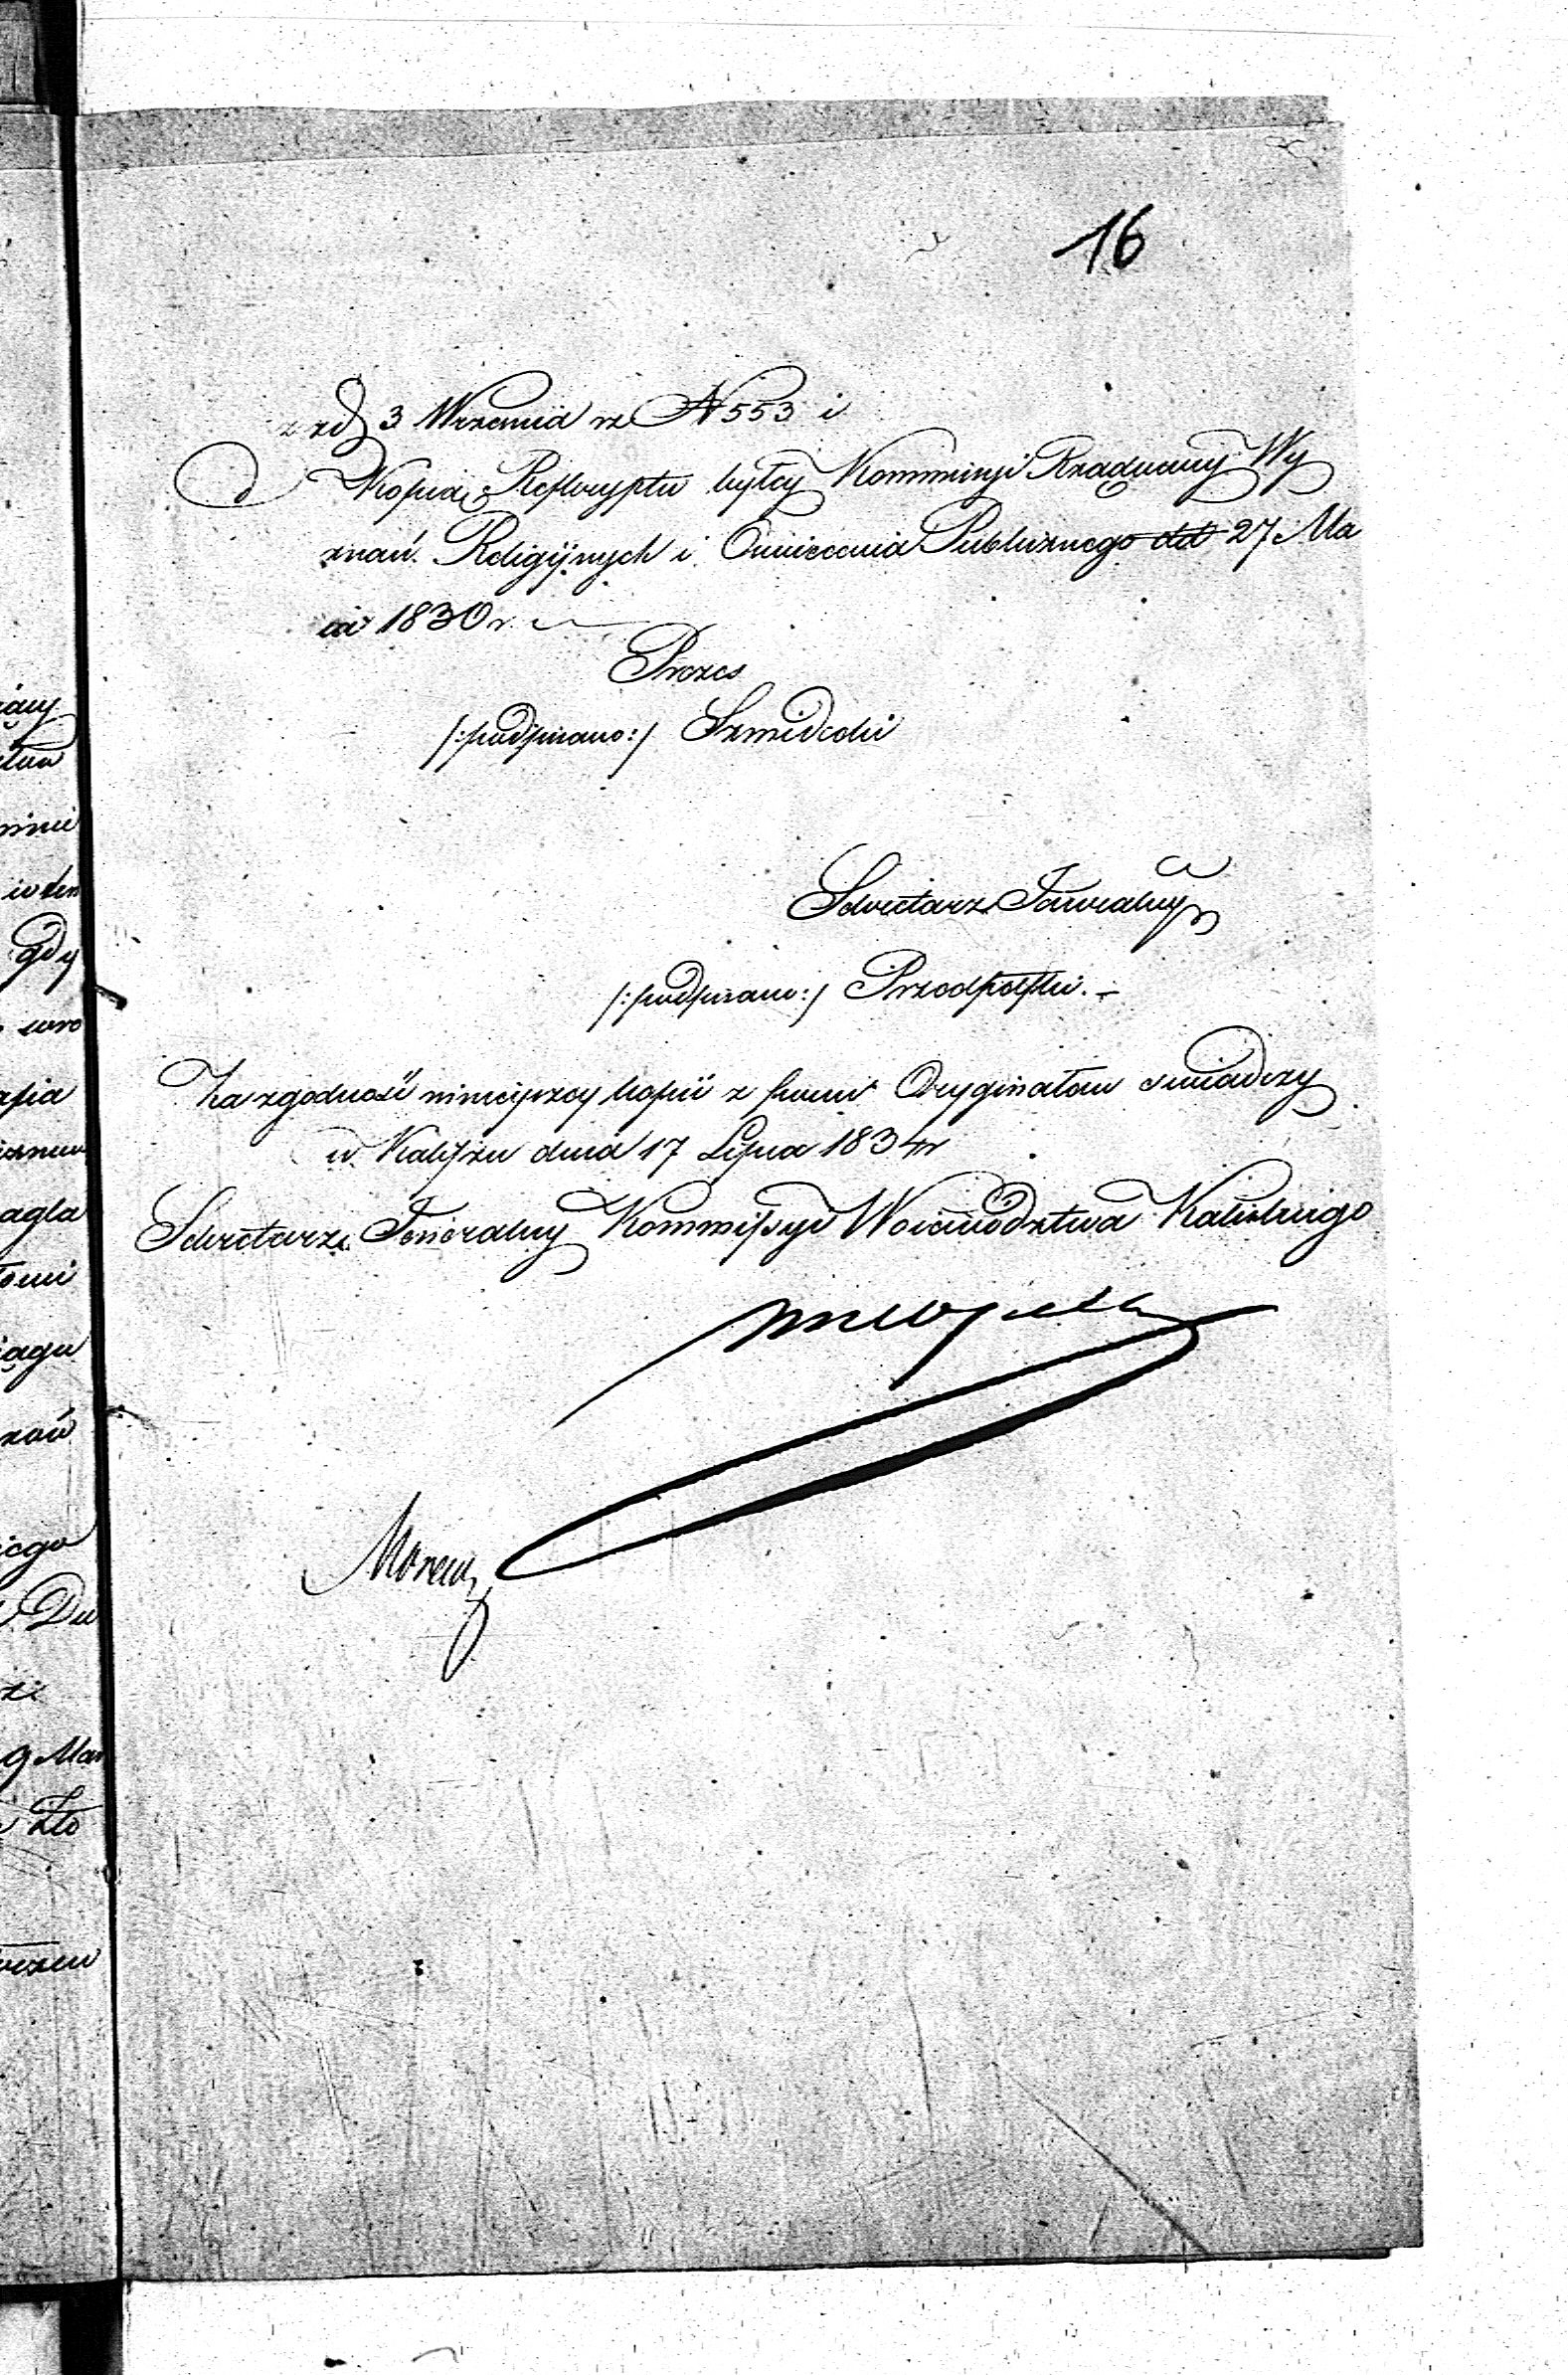 16
z d 3 Wrzesnia rz N 553 i
d Kopia Reskryptu byłey Kommissyi Rządowey Wy
znań Religijnych i Oswiecenia Publicznego dd 27 Ma
ia 1830 r.
Prezes
/:podpisano:/ Szmidecki
Sekretarz Jeneralny
/:podpisano:/ Przedpełski. –
Za zgodność ninieyszey kopii z swym Oryginałem swiadczy
w Kaliszu dnia 17 Lipca 1834 r
Sekretarz Jeneralny Kommissyi Woiewództwa Kaliskiego
gdy
ców
iego
Du
9 Mar
Zło